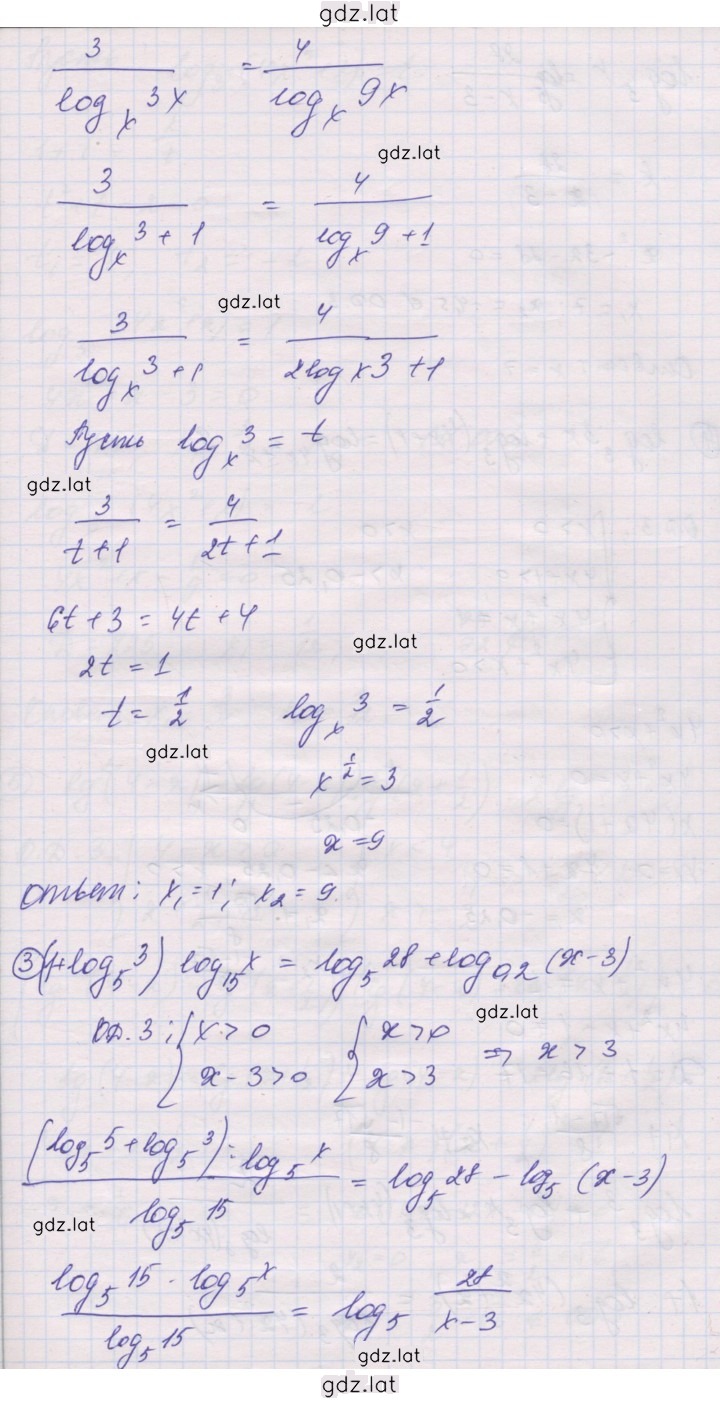 gdz.lat
3/(log_x 3x) = 4/(log_x 9x)
gdz.lat
3/(log_x 3 + 1) = 4/(log_x 9 + 1)
gdz.lat
3/(log_x 3 + 1) = 4/(2log x 3 + 1)
Пусть log_x 3 = t
gdz.lat
3/(t+1) = 4/(2t+1)
6t + 3 = 4t + 4
gdz.lat
2t = 1
t = 1/2 log_x 3 = 1/2
gdz.lat
x^(1/2) = 3
x = 9
Ответ: x₁ = 1; x₂ = 9.
③ (1+log₅3) log₁₅x = log₅28 + log₀,₂(x-3)
gdz.lat
ОДЗ: {x > 0 {x > 0
x - 3 > 0 x > 3 ⇒ x > 3
((log₅5 + log₅3) · log₅x)/(log₅15) = log₅28 - log₅(x-3)
gdz.lat
(log₅15 · log₅x)/(log₅15) = log₅ 28/(x-3)
gdz.lat
gdz.lat